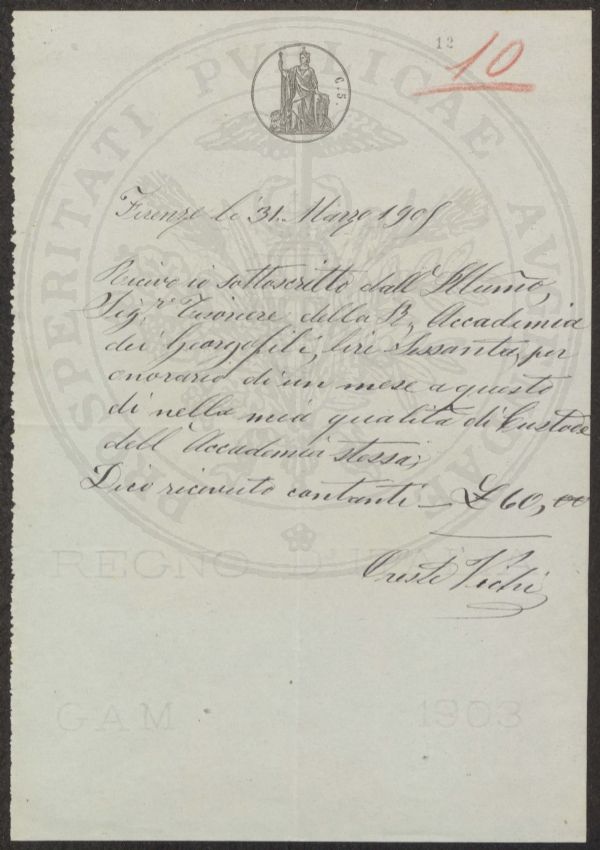 12
10
C. 5.
PROSPERITATI PUBLICAE AUGENDAE
Firenze li 31. Marzo 1905
Ricevo io sottoscritto dall' Illmo,
Sig.r Tesoriere della R. Accademia
dei Georgofili, lire Sessanta, per
onorario di un mese a questo
dì nella mia qualità di Custode
dell' Accademia stessa;
Dico ricevuto contanti — £ 60,00
Oreste Vichi
REGNO D'ITALIA
GAM 1903